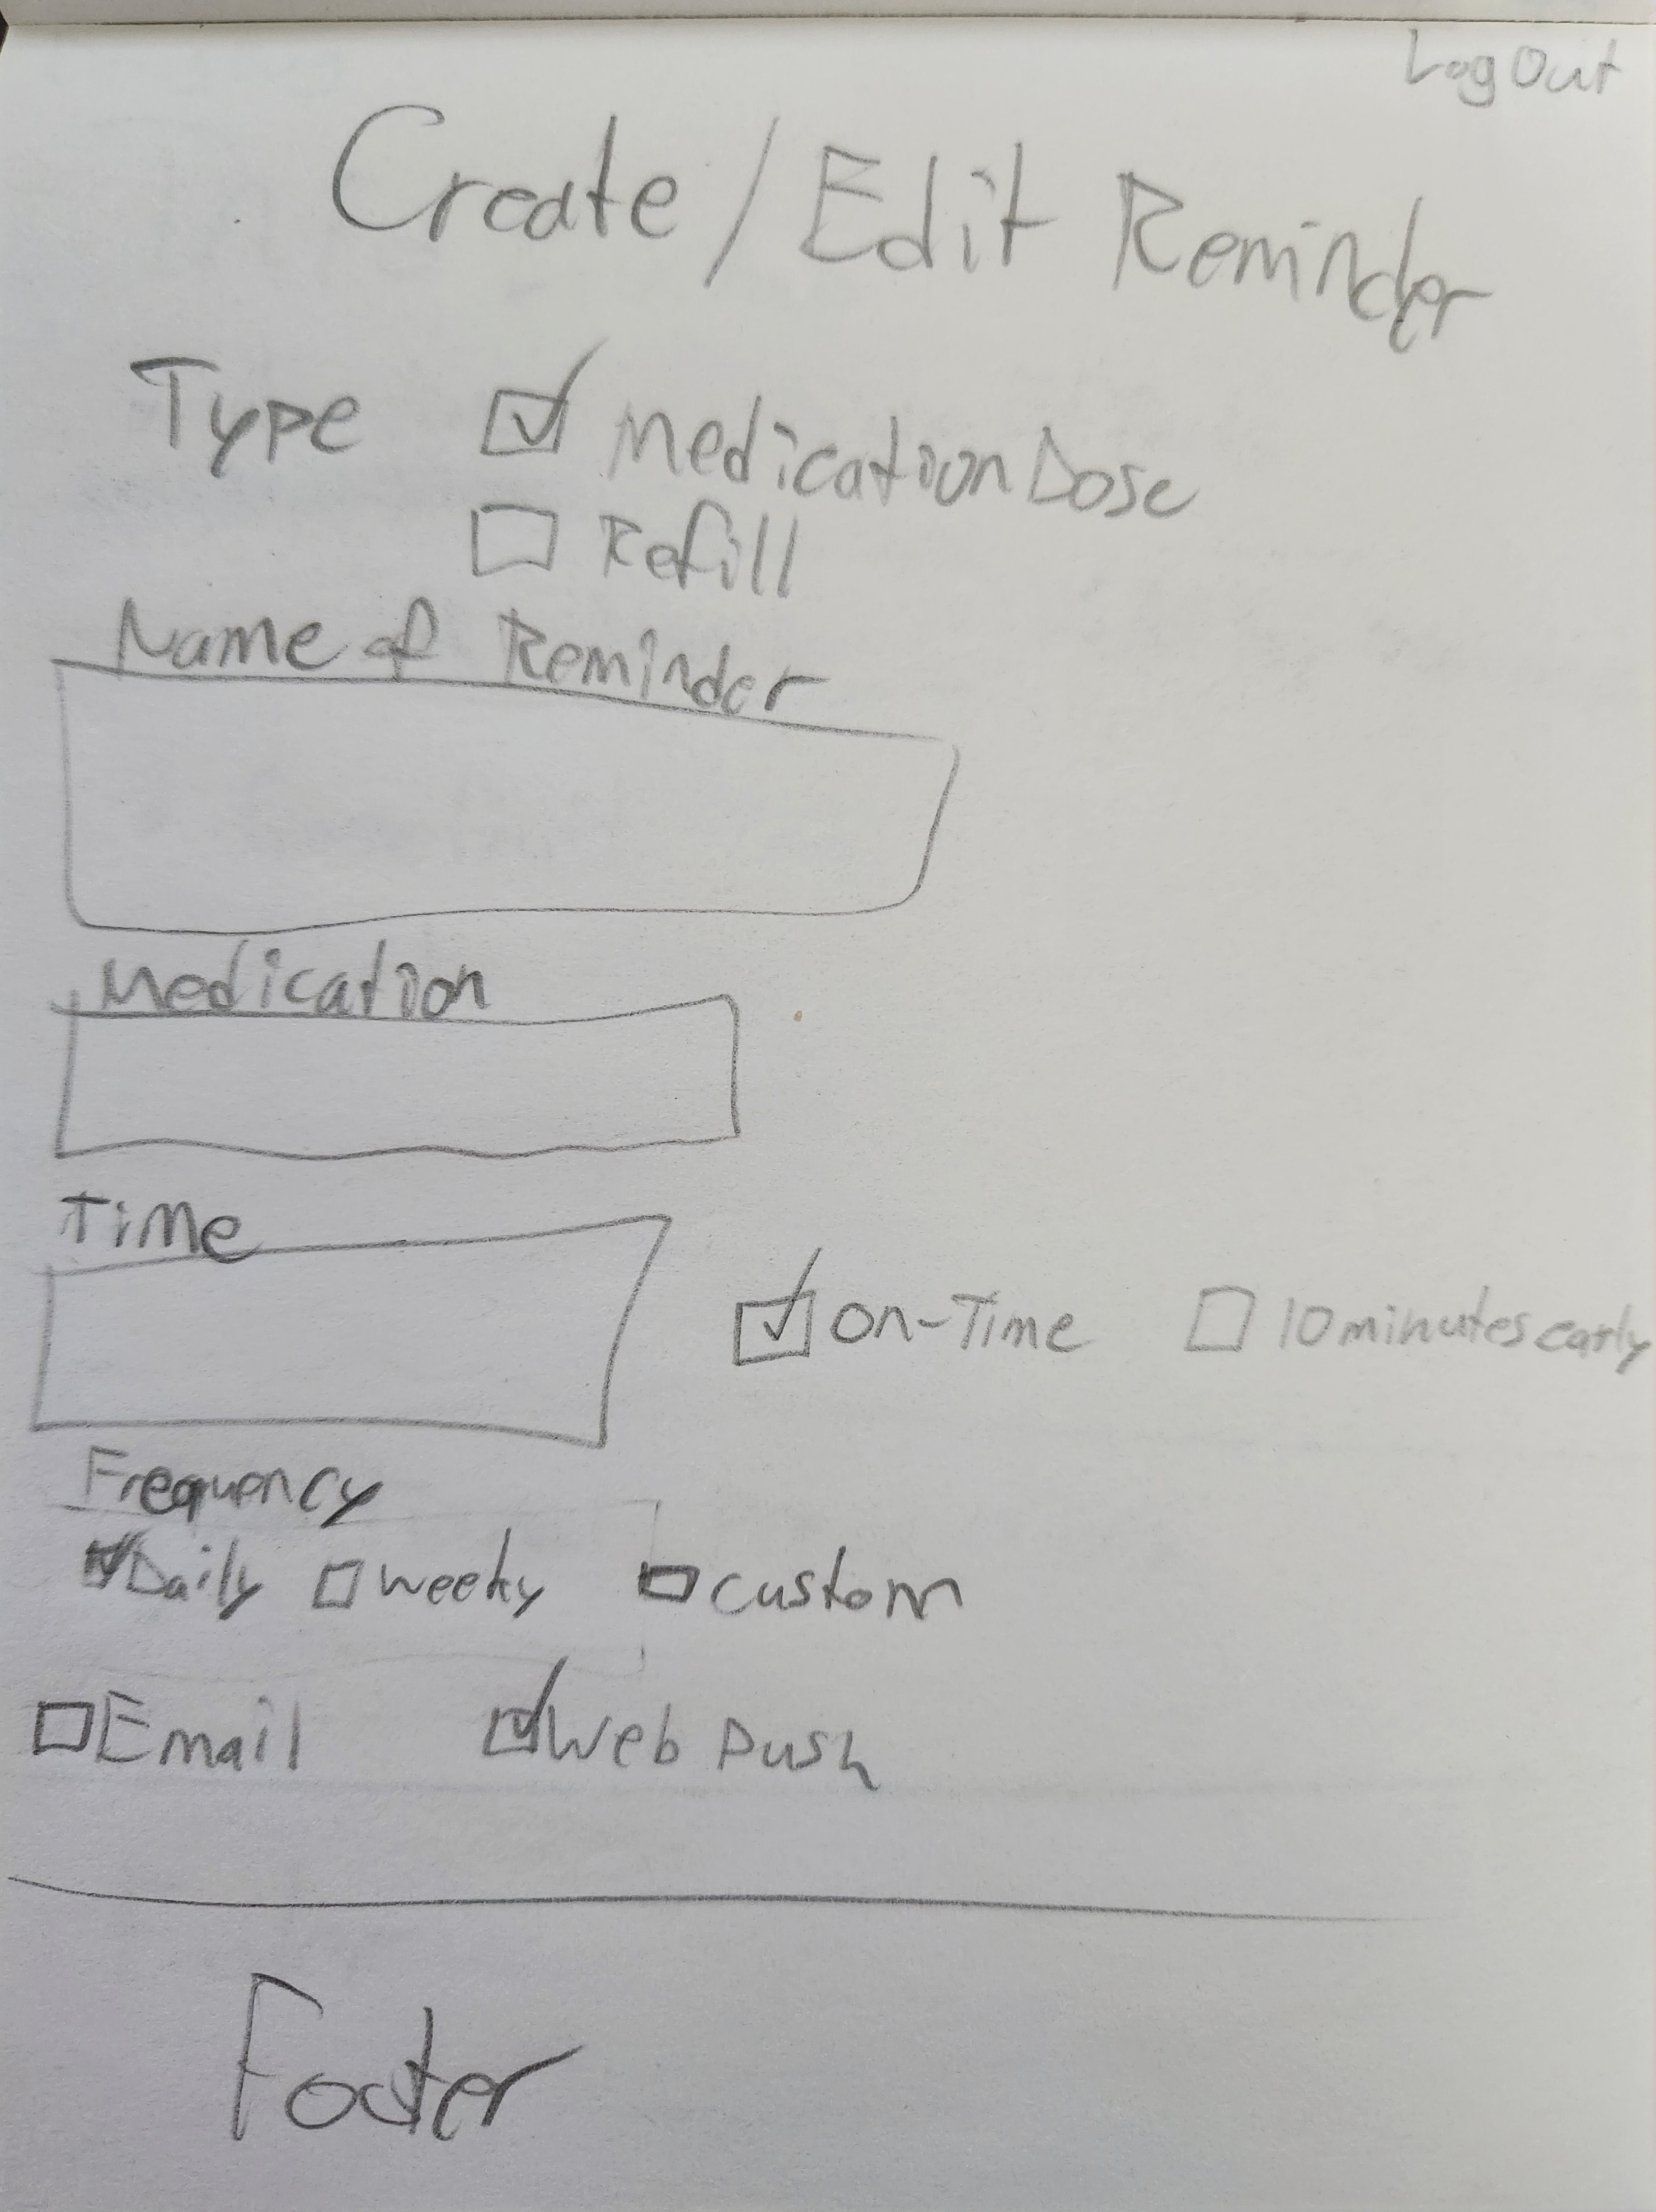 Log Out
Create / Edit Reminder
Type Medication Dose
Refill
Name of Reminder
Medication
Time
On-Time 10 minutes early
Frequency
Daily weeky custom
Email Web Push
Footer